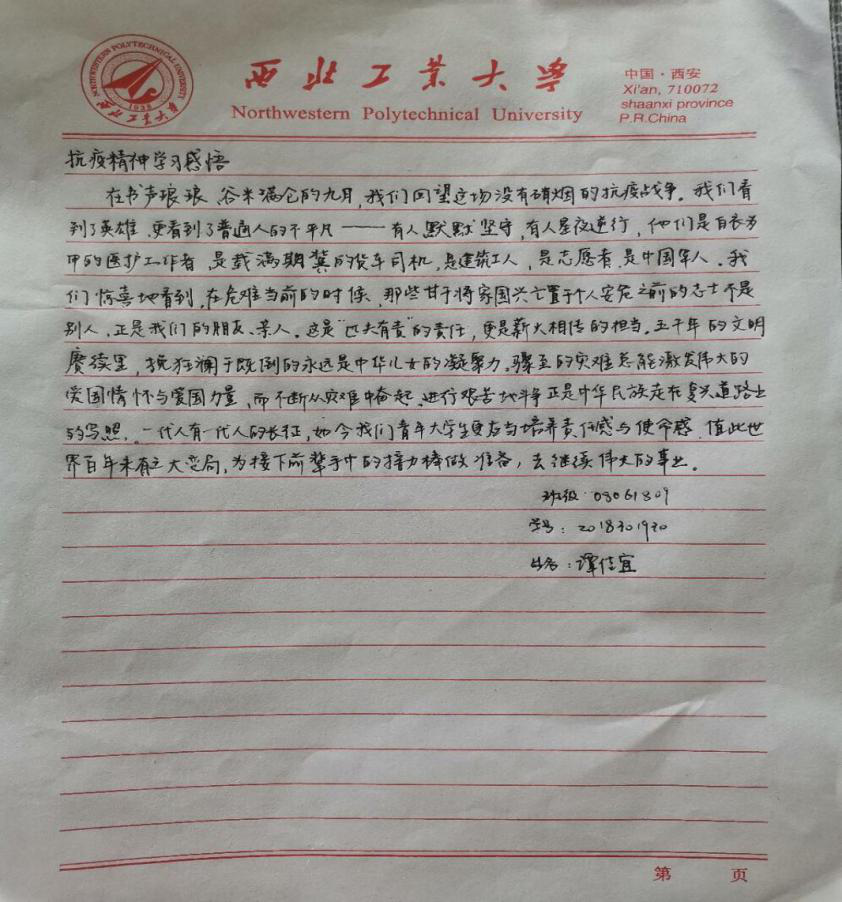 NORTHWESTERN POLYTECHNICAL UNIVERSITY
1938
西北工业大学
西北工业大学
Northwestern Polytechnical University
中国·西安
Xi'an, 710072
shaanxi province
P.R.China
抗疫精神学习感悟
在书声琅琅、谷米满仓的九月,我们回望这场没有硝烟的抗疫战争。我们看
到了英雄,更看到了普通人的不平凡——有人默默坚守,有人星夜逆行,他们是白衣为
甲的医护工作者,是载满期冀的货车司机,是建筑工人,是志愿者,是中国军人。我
们惊喜地看到,在危难当前的时候,那些甘于将家国兴亡置于个人安危之前的志士不是
别人,正是我们的朋友、亲人。这是“匹夫有责”的责任,更是薪火相传的担当。五千年的文明
赓续里,挽狂澜于既倒的永远是中华儿女的凝聚力。骤至的灾难总能激发伟大的
爱国情怀与爱国力量,而不断从灾难中奋起、进行艰苦地斗争正是中华民族走在复兴道路上
的写照。一代人有一代人的长征,如今我们青年大学生更应当培养责任感与使命感,值此世
界百年未有之大变局,为接下前辈手中的接力棒做准备,去继续伟大的事业。
班级:08061809
学号:2018301920
姓名:谭佳宜
第 页